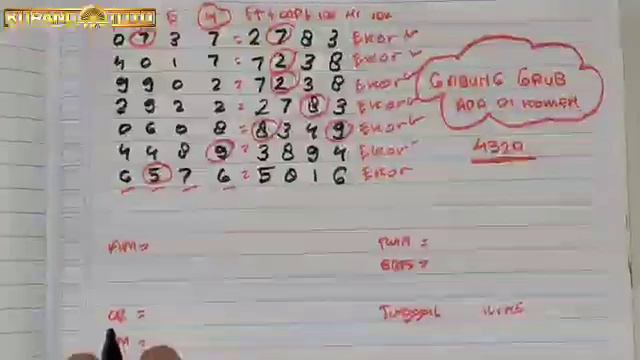 KUPANG
0 7 3 7 = 2 7 8 3 Ekor
4 0 1 7 = 7 2 3 8 Ekor
9 9 0 2 = 7 2 3 8 Ekor
2 9 2 2 = 2 7 8 3 Ekor
0 6 0 8 = 8 3 4 9 Ekor
4 4 8 9 = 3 8 9 4 Ekor
6 5 7 6 = 5 0 1 6 Ekor
GABUNG GRUB
ADA DI KOMEN
4320
AIM =
TWIN =
CB =
M =
Tunggal